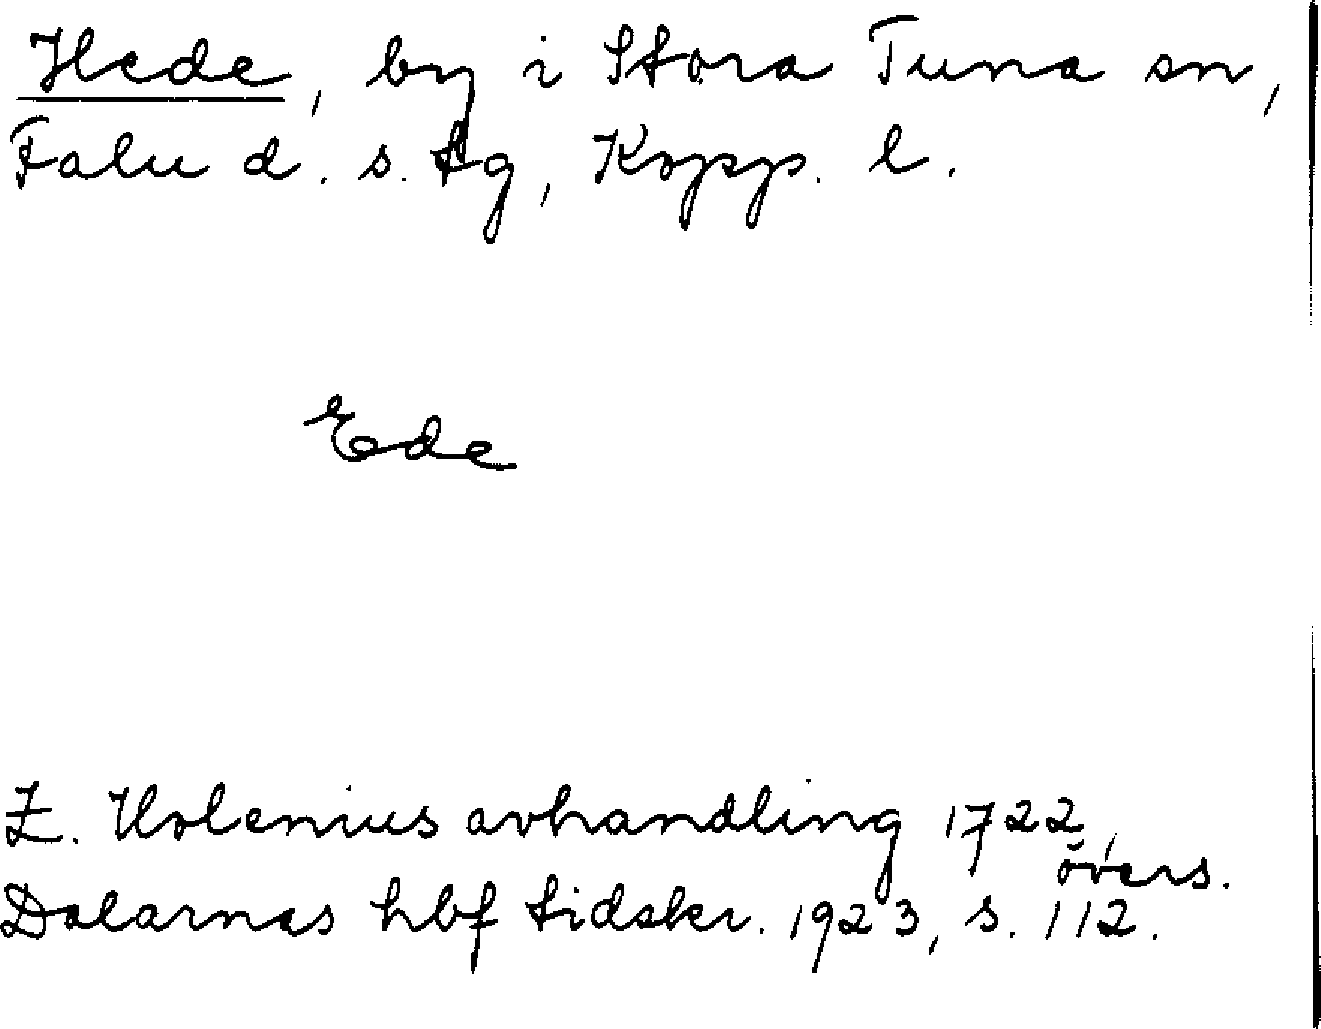 Hede, by i Stora Tuna sn,
Falu d. s. tg, Kopp. l.
Ede
Z. Holenius avhandling 1722,
övers.
Dalarnas hbf tidskr. 1923, s. 112.